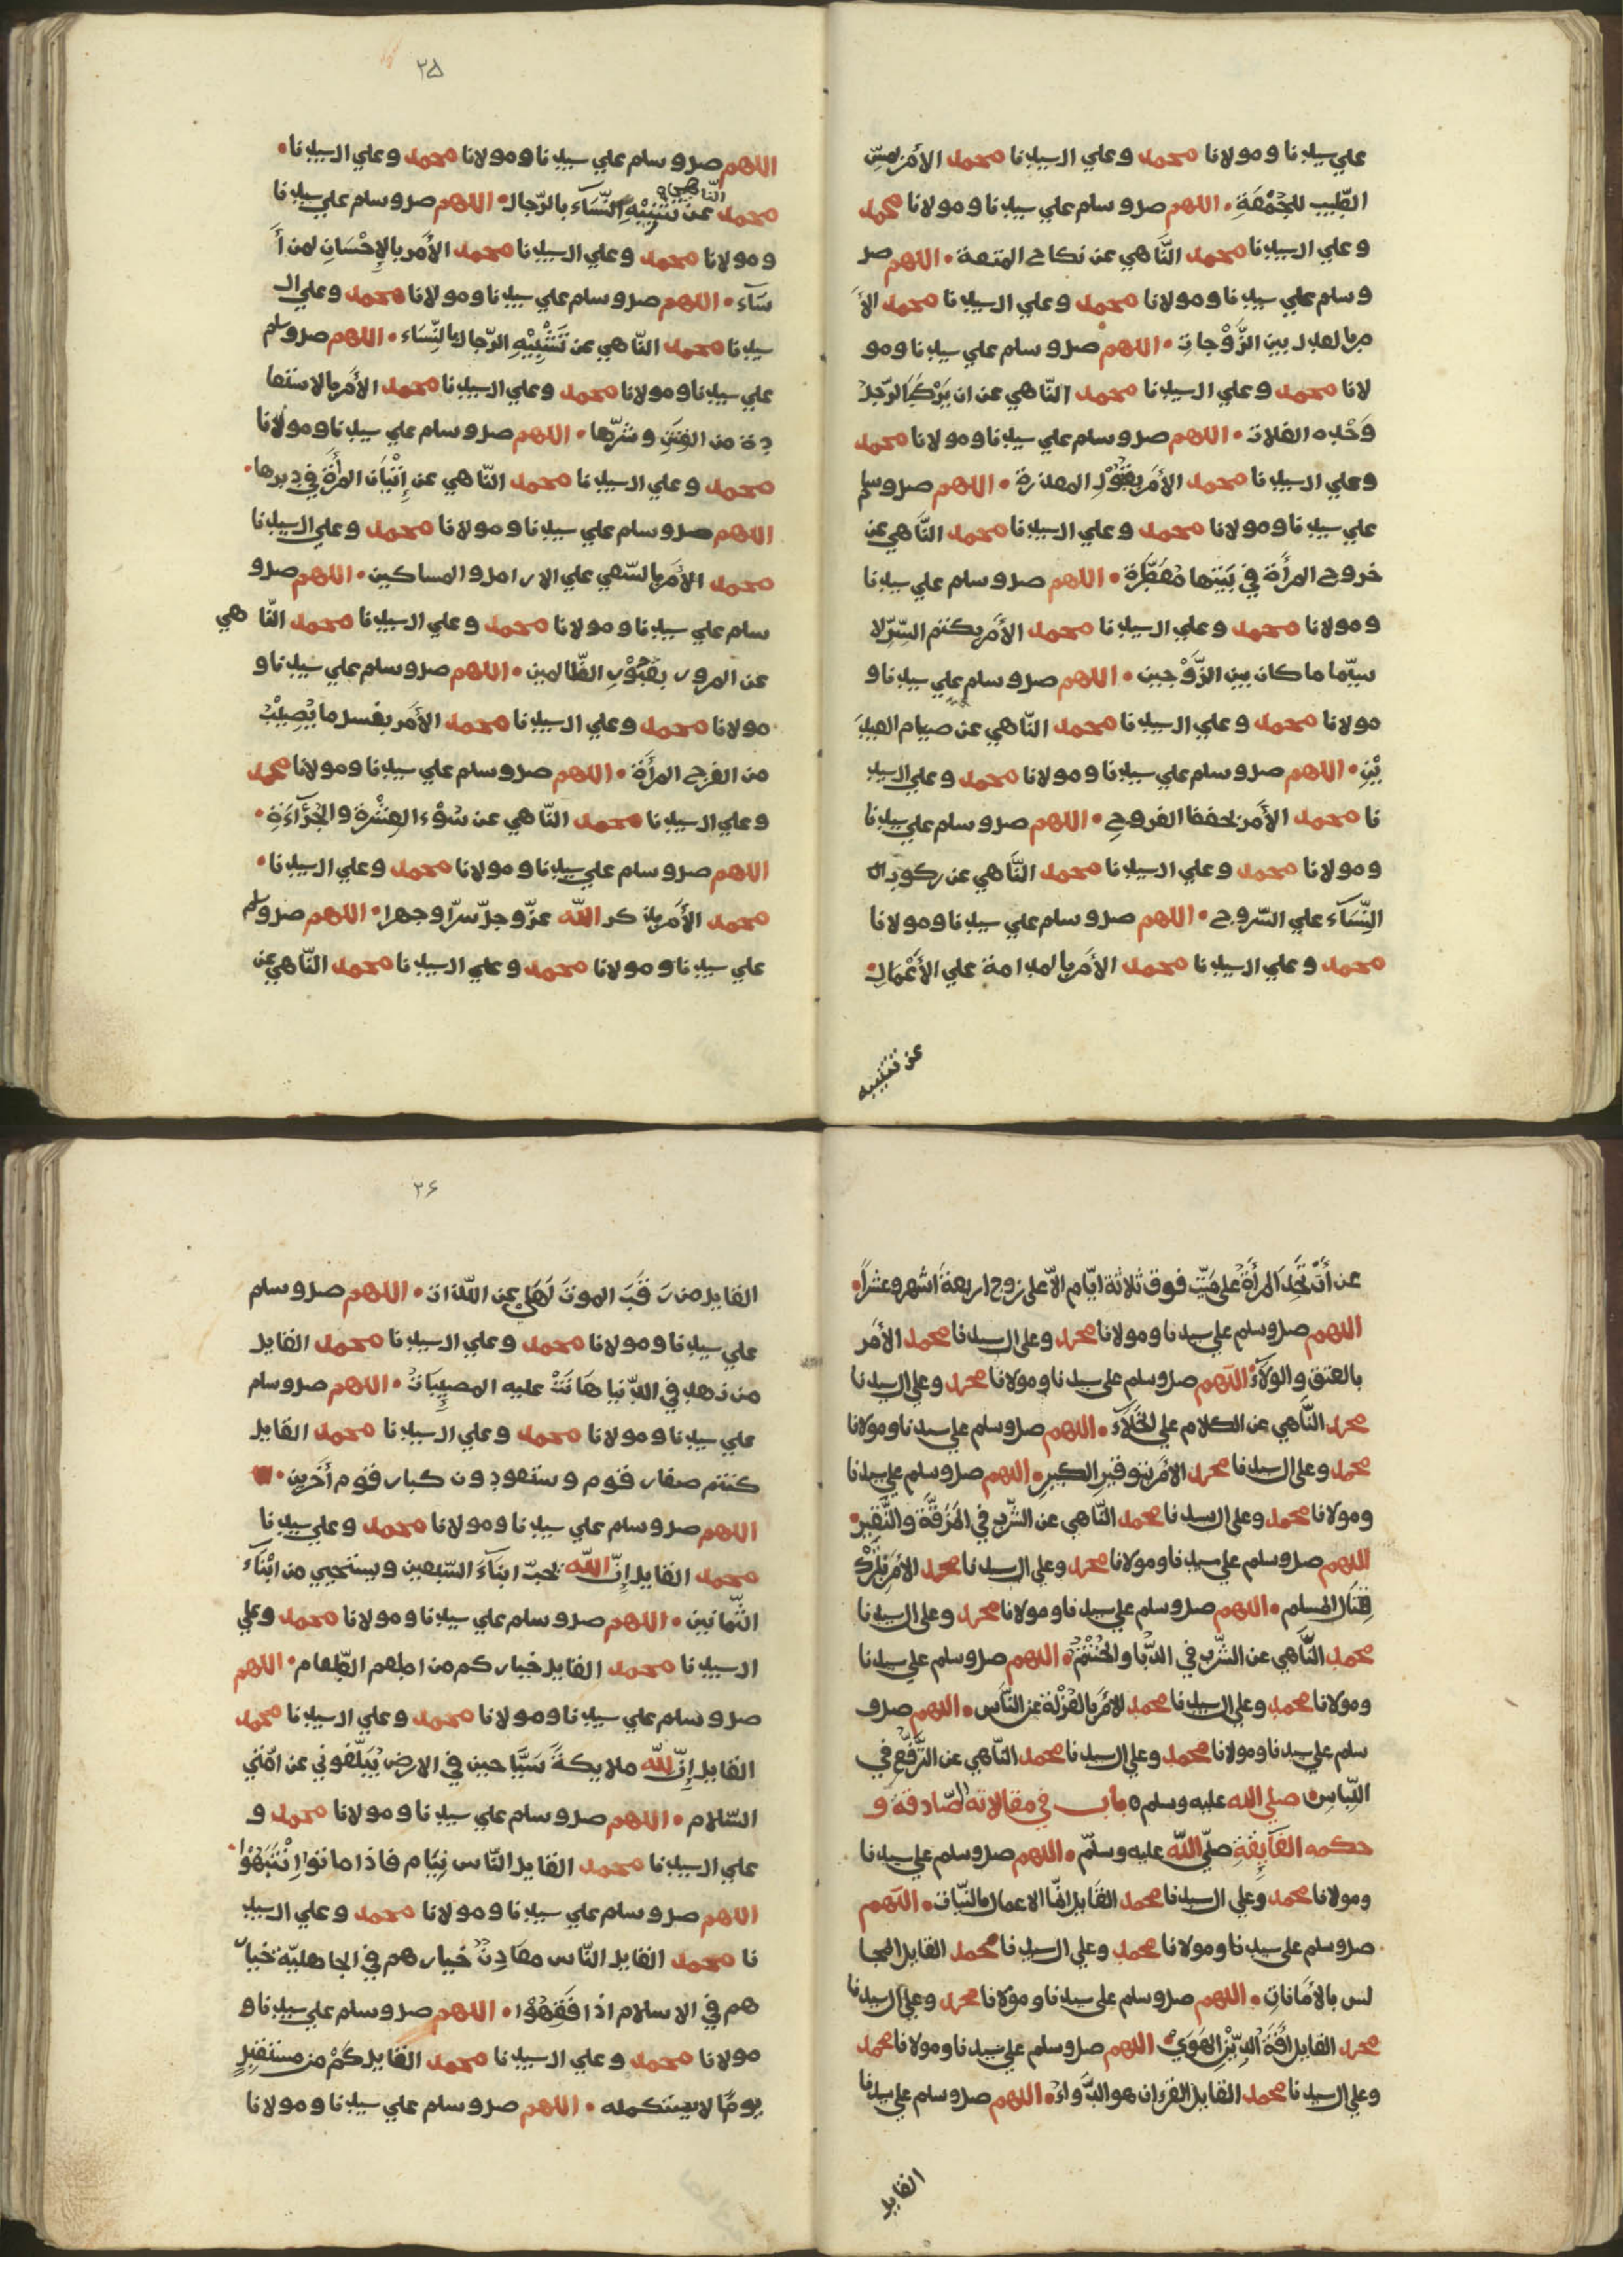 علي سيدنا ومولانا محمد وعلي ال سيدنا محمد الأمر بمسّ
الطّيب للجُمْعَةِ • اللهم صل وسلم علي سيدنا ومولانا محمد
وعلي ال سيدنا محمد النَّاهي عن نكاح المتعة • اللهم صل
وسلم علي سيدنا ومولانا محمد وعلي ال سيدنا محمد الأ
مر بالعدل بين الزَّوْجاتِ • اللهم صل وسلم علي سيدنا ومو
لانا محمد وعلي ال سيدنا محمد النّاهي عن ان يَرْكَبَ الرّجل
وَحْده الفلات • اللهم صل وسلم علي سيدنا ومولانا محمد
وعلي ال سيدنا محمد الأمر بقَبُوْلِ المعذرة • اللهم صل وسلم
علي سيدنا ومولانا محمد وعلي ال سيدنا محمد النَّاهي عن
خروج المرأة في بَيْتها مُعَطَّرة • اللهم صل وسلم علي سيدنا
ومولانا محمد وعلي ال سيدنا محمد الأمر بكتم السّرّ لا
سيّما ما كان بين الزَّوْجين • اللهم صل وسلم علي سيدنا و
مولانا محمد وعلي ال سيدنا محمد النّاهي عن صيام العيدَ
يْنِ • اللهم صل وسلم علي سيدنا ومولانا محمد وعلي ال سيد
نا محمد الأمر بحفظ الفروج • اللهم صل وسلم علي سيدنا
ومولانا محمد وعلي ال سيدنا محمد النَّاهي عن ركوب ال
النِّسَآء علي السّروج • اللهم صل وسلم علي سيدنا ومولانا
محمد وعلي ال سيدنا محمد الأمر بالمدامة علي الأعْمَالِ
عن تشبيه
٢٥
اللهم صل وسلم علي سيدنا ومولانا محمد وعلي ال سيدنا •
النّاهي
محمد عن تَشْبِيْهِ النِّسَآء بالرّجال • اللهم صل وسلم علي سيدنا
ومولانا محمد وعلي ال سيدنا محمد الأمر بالإحْسَانِ لمن أَ
سَآء • اللهم صل وسلم علي سيدنا ومولانا محمد وعلي ال
سيدنا محمد النّاهي عن تَشْبِيْهِ الرّجال بالنِّسَاء • اللهم صل وسلم
علي سيدنا ومولانا محمد وعلي ال سيدنا محمد الأمر بالاستعا
ذة من الفِتَنِ وشَرّها • اللهم صل وسلم علي سيدنا ومولانا
محمد وعلي ال سيدنا محمد النّاهي عن إتْيَان المرأة في دبرها •
اللهم صل وسلم علي سيدنا ومولانا محمد وعلي ال سيدنا
محمد الأمر بالسّعي علي الارامل والمساكين • اللهم صل و
سلم علي سيدنا ومولانا محمد وعلي ال سيدنا محمد النّاهي
عن المرور بقُبُوْرِ الظّالمين • اللهم صل وسلم علي سيدنا و
مولانا محمد وعلي ال سيدنا محمد الأمر بغسل ما يُصِيْبُ
من الفرج المرأة • اللهم صل وسلم علي سيدنا ومولانا محمد
وعلي ال سيدنا محمد النّاهي عن سُوْء العِشْرة والجُرْآءَةِ •
اللهم صل وسلم علي سيدنا ومولانا محمد وعلي ال سيدنا •
محمد الأمر بذكر اللّه عزّ وجلّ سرّا وجهرا • اللهم صل وسلم
علي سيدنا ومولانا محمد وعلي ال سيدنا محمد النّاهي عن
عن أنْ تُحِدَ المرأةُ علي مَيّتٍ فوق ثلاثة ايّام الاّ علي زوج اربعة اشهر وعشراً •
اللهم صل وسلم علي سيدنا ومولانا محمد وعلي ال سيدنا محمد الأمر
بالعتق والولآء • اللهم صل وسلم علي سيدنا ومولانا محمد وعلي ال سيدنا
محمد النَّاهي عن الكلام علي الخَلآء • اللهم صل وسلم علي سيدنا ومولانا
محمد وعلي ال سيدنا محمد الأمر بتوقير الكبير • اللهم صل وسلم علي سيدنا
ومولانا محمد وعلي ال سيدنا محمد النّاهي عن الشّرب في المُزَفَّتَةِ والنَّقِير •
اللهم صل وسلم علي سيدنا ومولانا محمد وعلي ال سيدنا محمد الأمر بتَرْك
قِتَال المسلم • اللهم صل وسلم علي سيدنا ومولانا محمد وعلي ال سيدنا
محمد النَّاهي عن الشّرب في الدّبّا والحَنْتَمْ • اللهم صل وسلم علي سيدنا
ومولانا محمد وعلي ال سيدنا محمد الأمر بالعُزْلة عن النّاس • اللهم صل و
سلم علي سيدنا ومولانا محمد وعلي ال سيدنا محمد النّاهي عن التَّرَفُّعِ في
اللّباس • صلي الله عليه وسلم ٥ باب في مقالاته الصّادقة و
حكمه الفَآيقةِ صلّي اللّه عليه وسلّم • اللهم صل وسلم علي سيدنا
ومولانا محمد وعلي ال سيدنا محمد القايل انمّا الاعمال بالنيّات • اللهم
صل وسلم علي سيدنا ومولانا محمد وعلي ال سيدنا محمد القايل المجا
لس بالأمَاناتِ • اللهم صل وسلم علي سيدنا ومولانا محمد وعلي ال سيدنا
محمد القايل افَةُ الدِّيْنِ الهَوَيْ • اللهم صل وسلم علي سيدنا ومولانا محمد
وعلي ال سيدنا محمد القايل القرءان هو الدَّواء • اللهم صل وسلم علي سيدنا
القايل
٢۶
القايل من رَقَبَ الموتَ لَهَا عن اللّذات • اللهم صل وسلم
علي سيدنا ومولانا محمد وعلي ال سيدنا محمد القايل
من زهد في الدّنيا هَانَتْ عليه المصيباتْ • اللهم صل وسلم
علي سيدنا ومولانا محمد وعلي ال سيدنا محمد القايل
كنتم صغار قوم وستعودون كبار قوم أخَرين •
اللهم صل وسلم علي سيدنا ومولانا محمد وعلي سيدنا
محمد القايل إنّ اللّه يحبّ ابنآءَ السّبعين ويستحيي من ابْنَآء
الثّمانين • اللهم صل وسلم علي سيدنا ومولانا محمد وعلي
ال سيدنا محمد القايل خياركم من اطعم الطّعام • اللهم
صل وسلم علي سيدنا ومولانا محمد وعلي ال سيدنا محمد
القايل إنّ للّه ملايكةً سَيَّاحين في الارض يُبَلّغوني عن امّتي
السّلام • اللهم صل وسلم علي سيدنا ومولانا محمد و
علي ال سيدنا محمد القايل النّاس نِيَام فاذا ماتوا انْتَبَهُوْا •
اللهم صل وسلم علي سيدنا ومولانا محمد وعلي ال سيد
نا محمد القايل النّاس معَادِنُ خيارهم في الجاهليّة خيار
هم في الاسلام اذا فَقِهُوْا • اللهم صل وسلم علي سيدنا و
مولانا محمد وعلي ال سيدنا محمد القايل كَمْ من مستقبِلٍ
يومًا لا يستكمله • اللهم صل وسلم علي سيدنا ومولانا